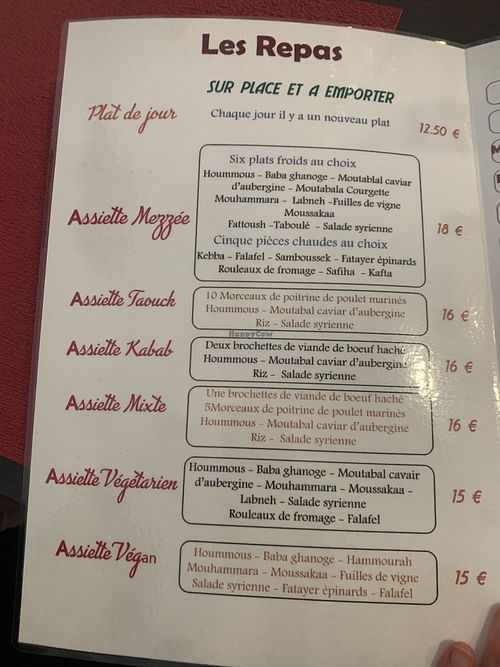 Les Repas
SUR PLACE ET A EMPORTER
Plat de jour
Chaque jour il y a un nouveau plat
12.50 €
Assiette Mezzée
Six plats froids au choix
Hoummous - Baba ghanoge - Moutablal caviar
d'aubergine - Moutabala Courgette
Mouhammara - Labneh -Fuilles de vigne
Moussakaa
Fattoush -Taboulé - Salade syrienne
Cinque pièces chaudes au choix
Kebba - Falafel - Samboussek - Fatayer épinards
Rouleaux de fromage - Safiha - Kafta
18 €
Assiette Taouck
10 Morceaux de poitrine de poulet marinés
Hoummous - Moutabal caviar d'aubergine
Riz - Salade syrienne
16 €
HappyCow
Assiette Kabab
Deux brochettes de viande de boeuf haché
Hoummous - Moutabal caviar d'aubergine
Riz - Salade syrienne
16 €
Assiette Mixte
Une brochettes de viande de boeuf haché
5Morceaux de poitrine de poulet marinés
Hoummous - Moutabal caviar d'aubergine
Riz - Salade syrienne
16 €
Assiette Végétarien
Hoummous - Baba ghanoge - Moutabal cavair
d'aubergine - Mouhammara - Moussakaa -
Labneh - Salade syrienne
Rouleaux de fromage - Falafel
15 €
Assiette Végan
Hoummous - Baba ghanoge - Hammourah
Mouhammara - Moussakaa - Fuilles de vigne
Salade syrienne - Fatayer épinards - Falafel
15 €